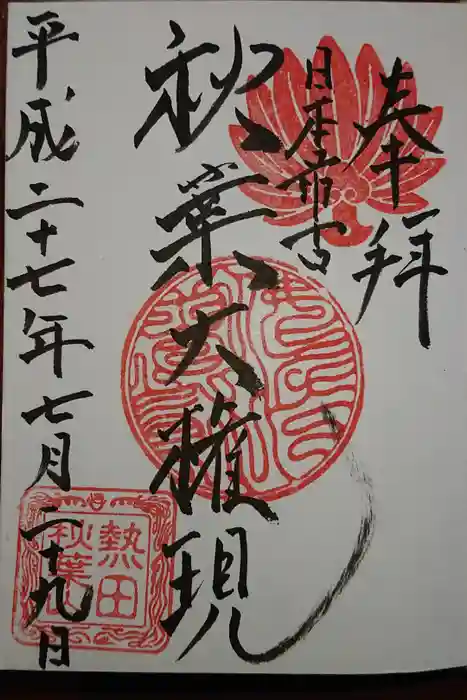 奉拝
日本最古
秋葉大権現
平成二十七年七月二十九日
熱田
秋葉山